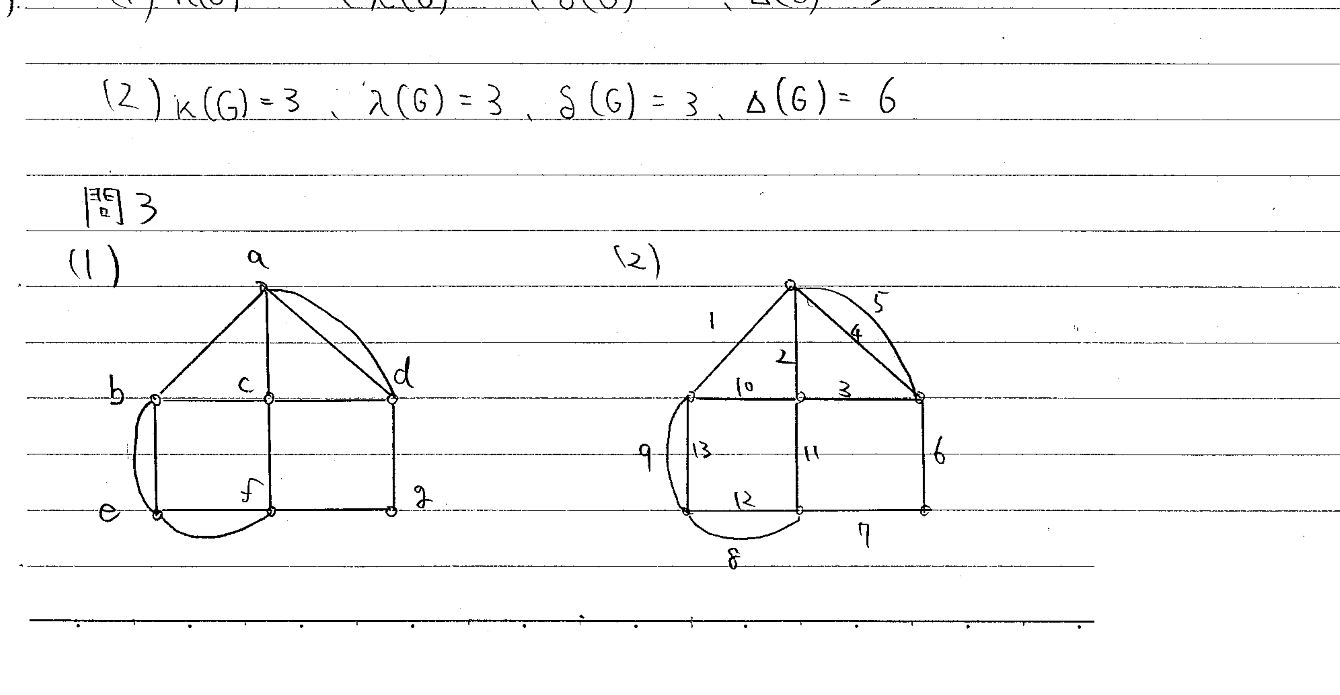 (2) κ(G)=3、λ(G)=3、δ(G)=3、Δ(G)= 6
問3
(1)
a
b c d
e f g
(2)
1 2 4 5
10 3
9 13 11 6
12
8 7